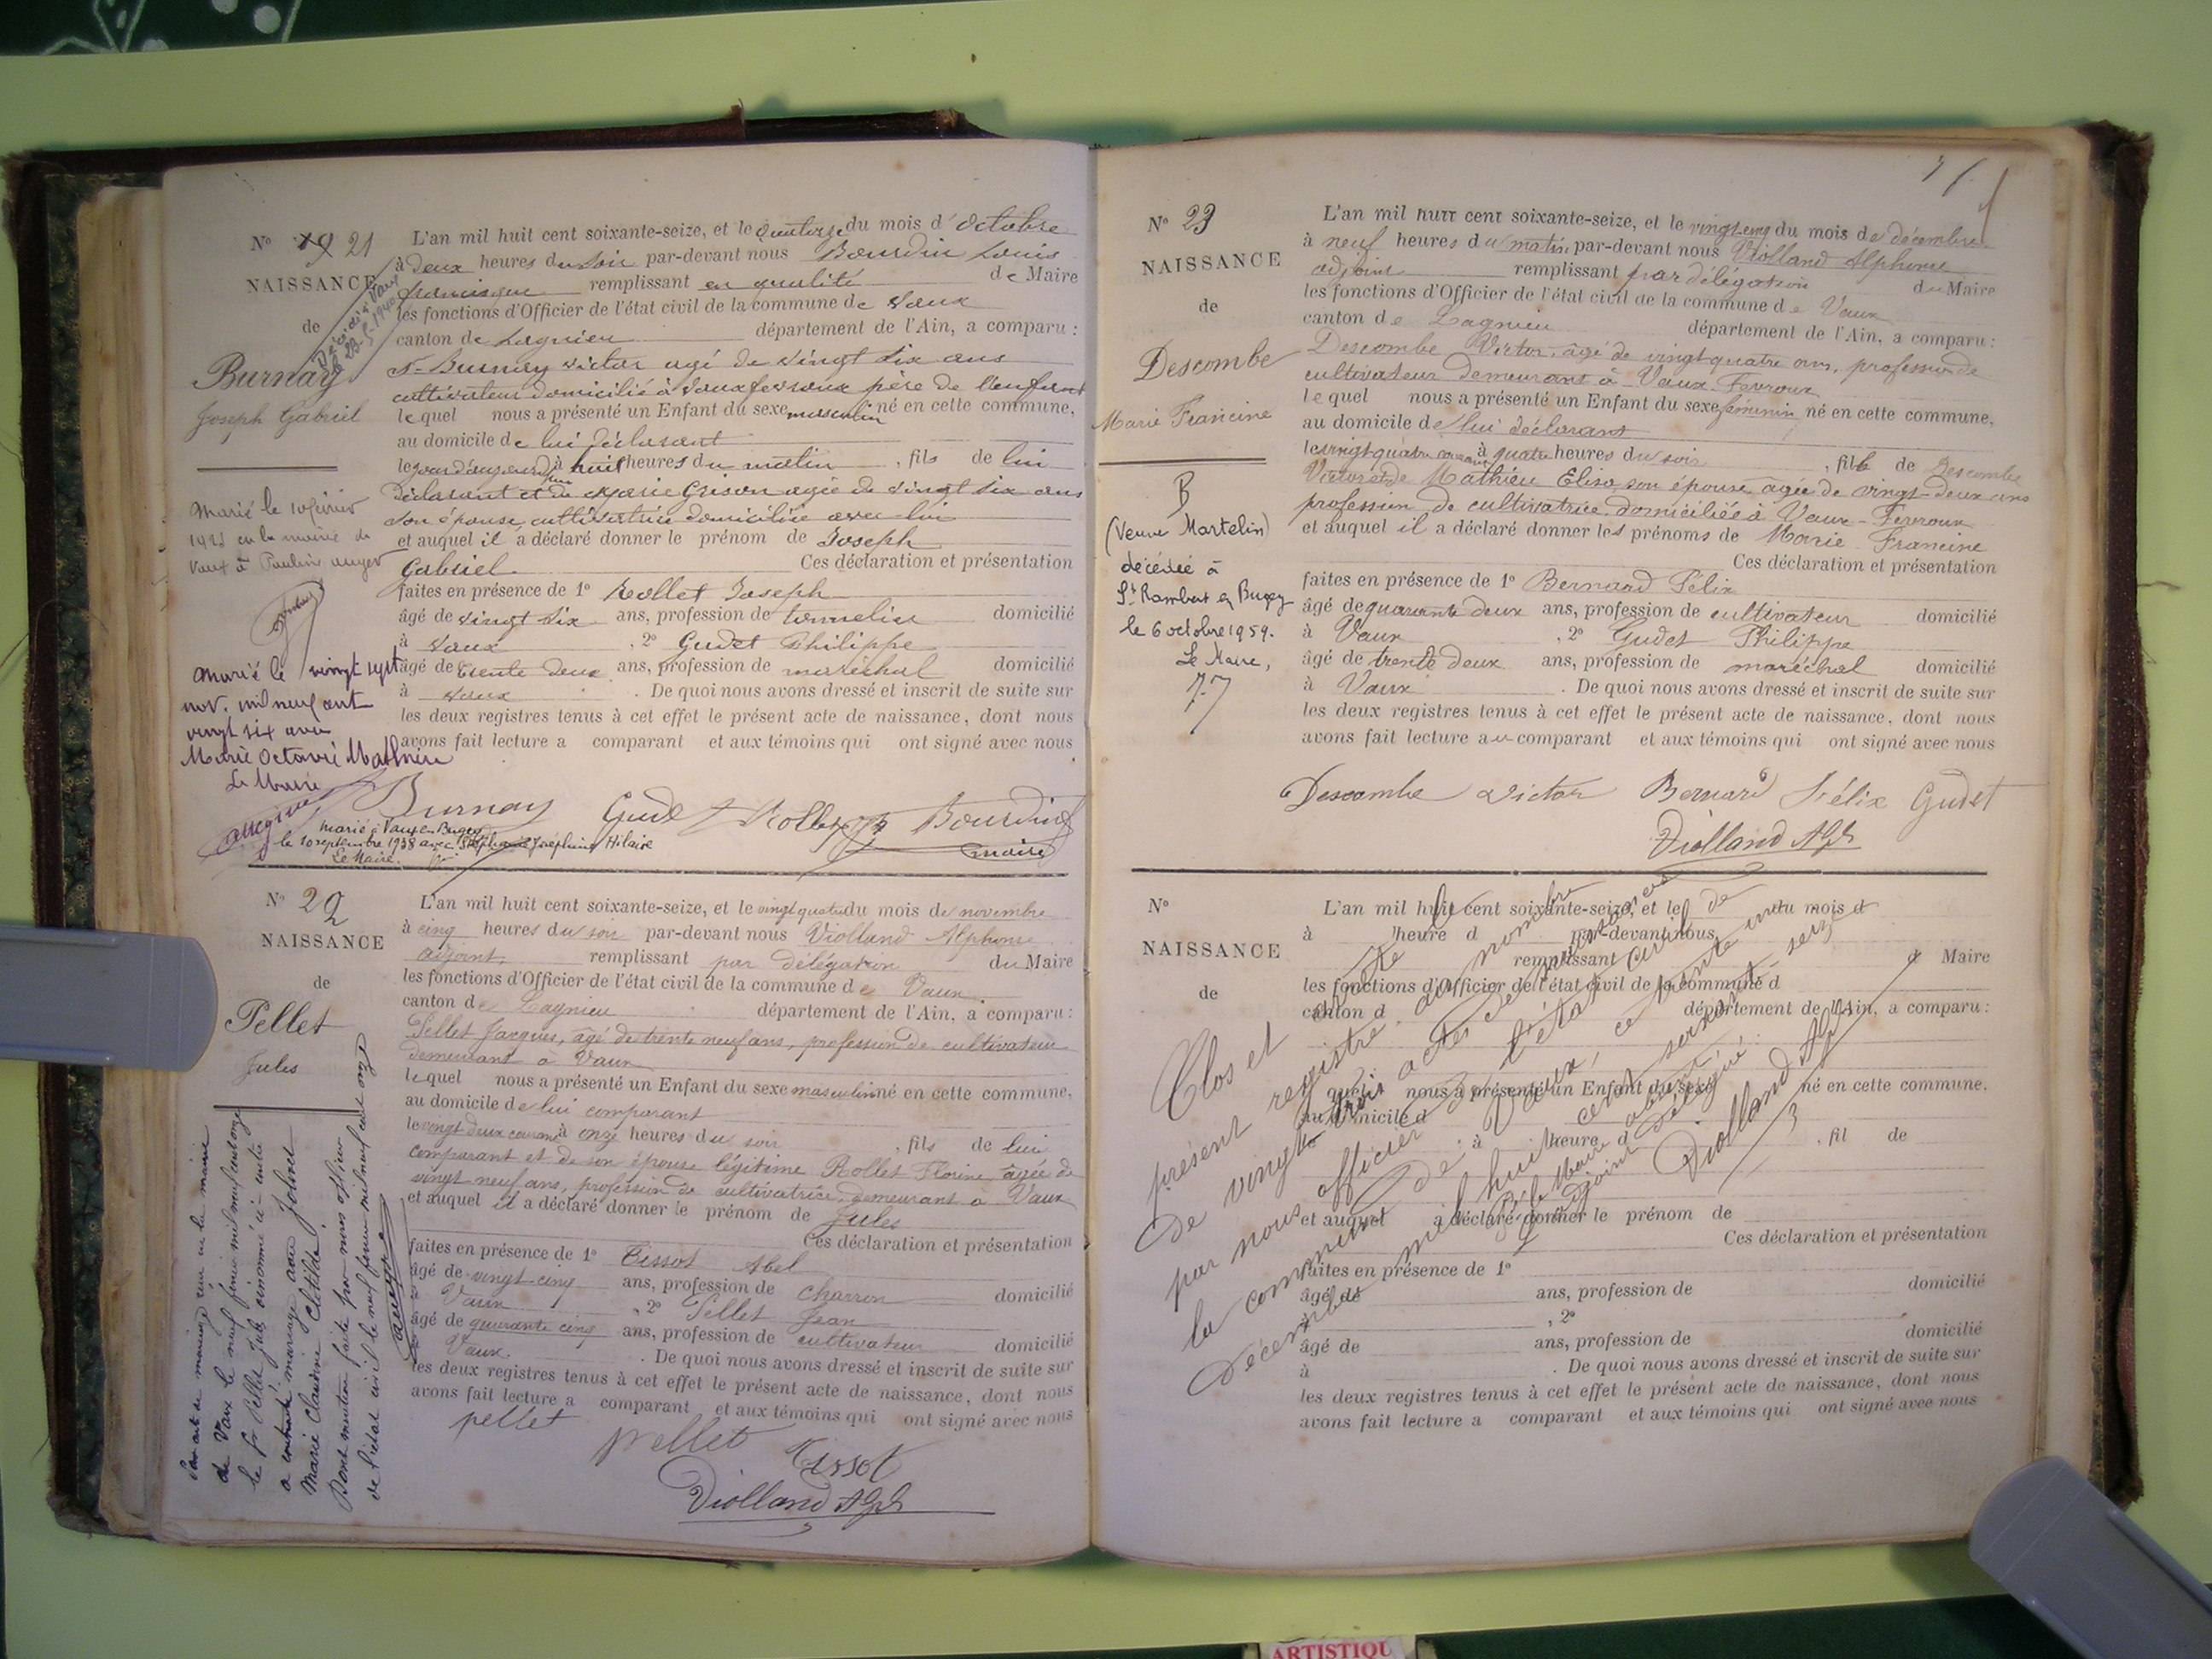 N° 19 21
NAISSANCE
de
Burnay
Joseph Gabriel
Décédé à Vaux
le 23-5-1940
Marié le 10 février
en la mairie de
Vaux à Pauline auger
Marié le vingt sept
nov. mil neuf cent
vingt six avec
Marie Octavie Mathieu
Le Maire
L'an mil huit cent soixante-seize, et le quatorze du mois d'octobre
à deux heures du soir par-devant nous Bourdin Louis
francisque remplissant en qualité de Maire
les fonctions d'Officier de l'état civil de la commune de Vaux
canton de Lagnieu département de l'Ain, a comparu :
Sr Burnay Victor agé de vingt six ans
cultivateur domicilié à Vaux fevroux père de l'enfant
lequel nous a présenté un Enfant du sexe masculin né en cette commune,
au domicile de lui déclarant
le jour d'aujourd'hui à huit heures du matin, fils de lui
déclarant et de Marie Grison agée de vingt six ans
son épouse cultivatrice domiciliée avec lui
et auquel il a déclaré donner le prénom de Joseph
Gabriel Ces déclaration et présentation
faites en présence de 1° Rollet Joseph
âgé de vingt six ans, profession de tonnelier domicilié
à Vaux, 2° Gudet Philippe
âgé de trente deux ans, profession de maréchal domicilié
à Vaux. De quoi nous avons dressé et inscrit de suite sur
les deux registres tenus à cet effet le présent acte de naissance, dont nous
avons fait lecture a comparant et aux témoins qui ont signé avec nous
Burnay Gudet Rollet Bourdin
maire
marié à Vaux en Bugey
le 10 septembre 1938 avec Joséphine Hilaire
Le Maire.
N° 22
NAISSANCE
de
Pellet
Jules
Par acte de mariage reçu en la mairie
de Vaux le neuf février mil neuf cent onze
le sr Pellet Jules dénommé ci-contre
a contracté mariage avec Jolivet
Marie Claudine Clotilde
Dont mention faite par nous officier
de l'état civil le neuf février mil neuf cent onze
L'an mil huit cent soixante-seize, et le vingt quatre du mois de novembre
à cinq heures du soir par-devant nous Violland Alphonse
adjoint, remplissant par délégation du Maire
les fonctions d'Officier de l'état civil de la commune de Vaux
canton de Lagnieu département de l'Ain, a comparu :
Pellet Jacques, âgé de trente neuf ans, profession de cultivateur
demeurant à Vaux
lequel nous a présenté un Enfant du sexe masculin né en cette commune,
au domicile de lui comparant
le vingt deux courant à onze heures du soir, fils de lui
comparant et de son épouse légitime Rollet Florine âgée de
vingt neuf ans, profession de cultivatrice, demeurant à Vaux
et auquel il a déclaré donner le prénom de Jules
Ces déclaration et présentation
faites en présence de 1° Tissot Abel
âgé de vingt cinq ans, profession de charron domicilié
à Vaux, 2° Pellet Jean
âgé de quarante cinq ans, profession de cultivateur domicilié
à Vaux. De quoi nous avons dressé et inscrit de suite sur
les deux registres tenus à cet effet le présent acte de naissance, dont nous
avons fait lecture a comparant et aux témoins qui ont signé avec nous
pellet pellet Tissot
Violland Alph
N° 23
NAISSANCE
de
Descombe
Marie Francine
(Veuve Martelin)
décédée à
St Rambert en Bugey
le 6 octobre 1959.
Le Maire,
L'an mil huit cent soixante-seize, et le vingt-cinq du mois de décembre
à neuf heures du matin par-devant nous Violland Alphonse
adjoint remplissant par délégation du Maire
les fonctions d'Officier de l'état civil de la commune de Vaux
canton de Lagnieu département de l'Ain, a comparu :
Descombe Victor, âgé de vingt quatre ans, profession de
cultivateur demeurant à Vaux-Fevroux
lequel nous a présenté un Enfant du sexe féminin né en cette commune,
au domicile de lui déclarant
le vingt quatre courant à quatre heures du soir, fille de Descombe
Victor et de Mathieu Elisa son épouse âgée de vingt-deux ans
profession de cultivatrice, domiciliée à Vaux-Fevroux
et auquel il a déclaré donner les prénoms de Marie Francine
Ces déclaration et présentation
faites en présence de 1° Bernard Félix
âgé de quarante deux ans, profession de cultivateur domicilié
à Vaux, 2° Gudet Philippe
âgé de trente deux ans, profession de maréchal domicilié
à Vaux. De quoi nous avons dressé et inscrit de suite sur
les deux registres tenus à cet effet le présent acte de naissance, dont nous
avons fait lecture au comparant et aux témoins qui ont signé avec nous
Descombe Victor Bernard Félix Gudet
Violland Alph
N°
NAISSANCE
de
L'an mil huit cent soixante-seize, et le du mois d
à heure d par-devant nous
remplissant d Maire
les fonctions d'Officier de l'état civil de la commune d
canton d département de l'Ain, a comparu :
quel nous a présenté un Enfant du sexe né en cette commune,
au domicile d
le à heure d, fil de
et auquel a déclaré donner le prénom de
Ces déclaration et présentation
faites en présence de 1°
âgé de ans, profession de domicilié
, 2°
âgé de ans, profession de domicilié
à. De quoi nous avons dressé et inscrit de suite sur
les deux registres tenus à cet effet le présent acte de naissance, dont nous
avons fait lecture a comparant et aux témoins qui ont signé avec nous
Clos et arrêté le
présent registre au nombre
de vingt trois actes de naissances
par nous officier de l'état civil de
la commune de Vaux, ce trente un
décembre mil huit cent soixante-seize
Pr le Maire absent
L'adjoint délégué
Violland Alph
ARTISTIQU